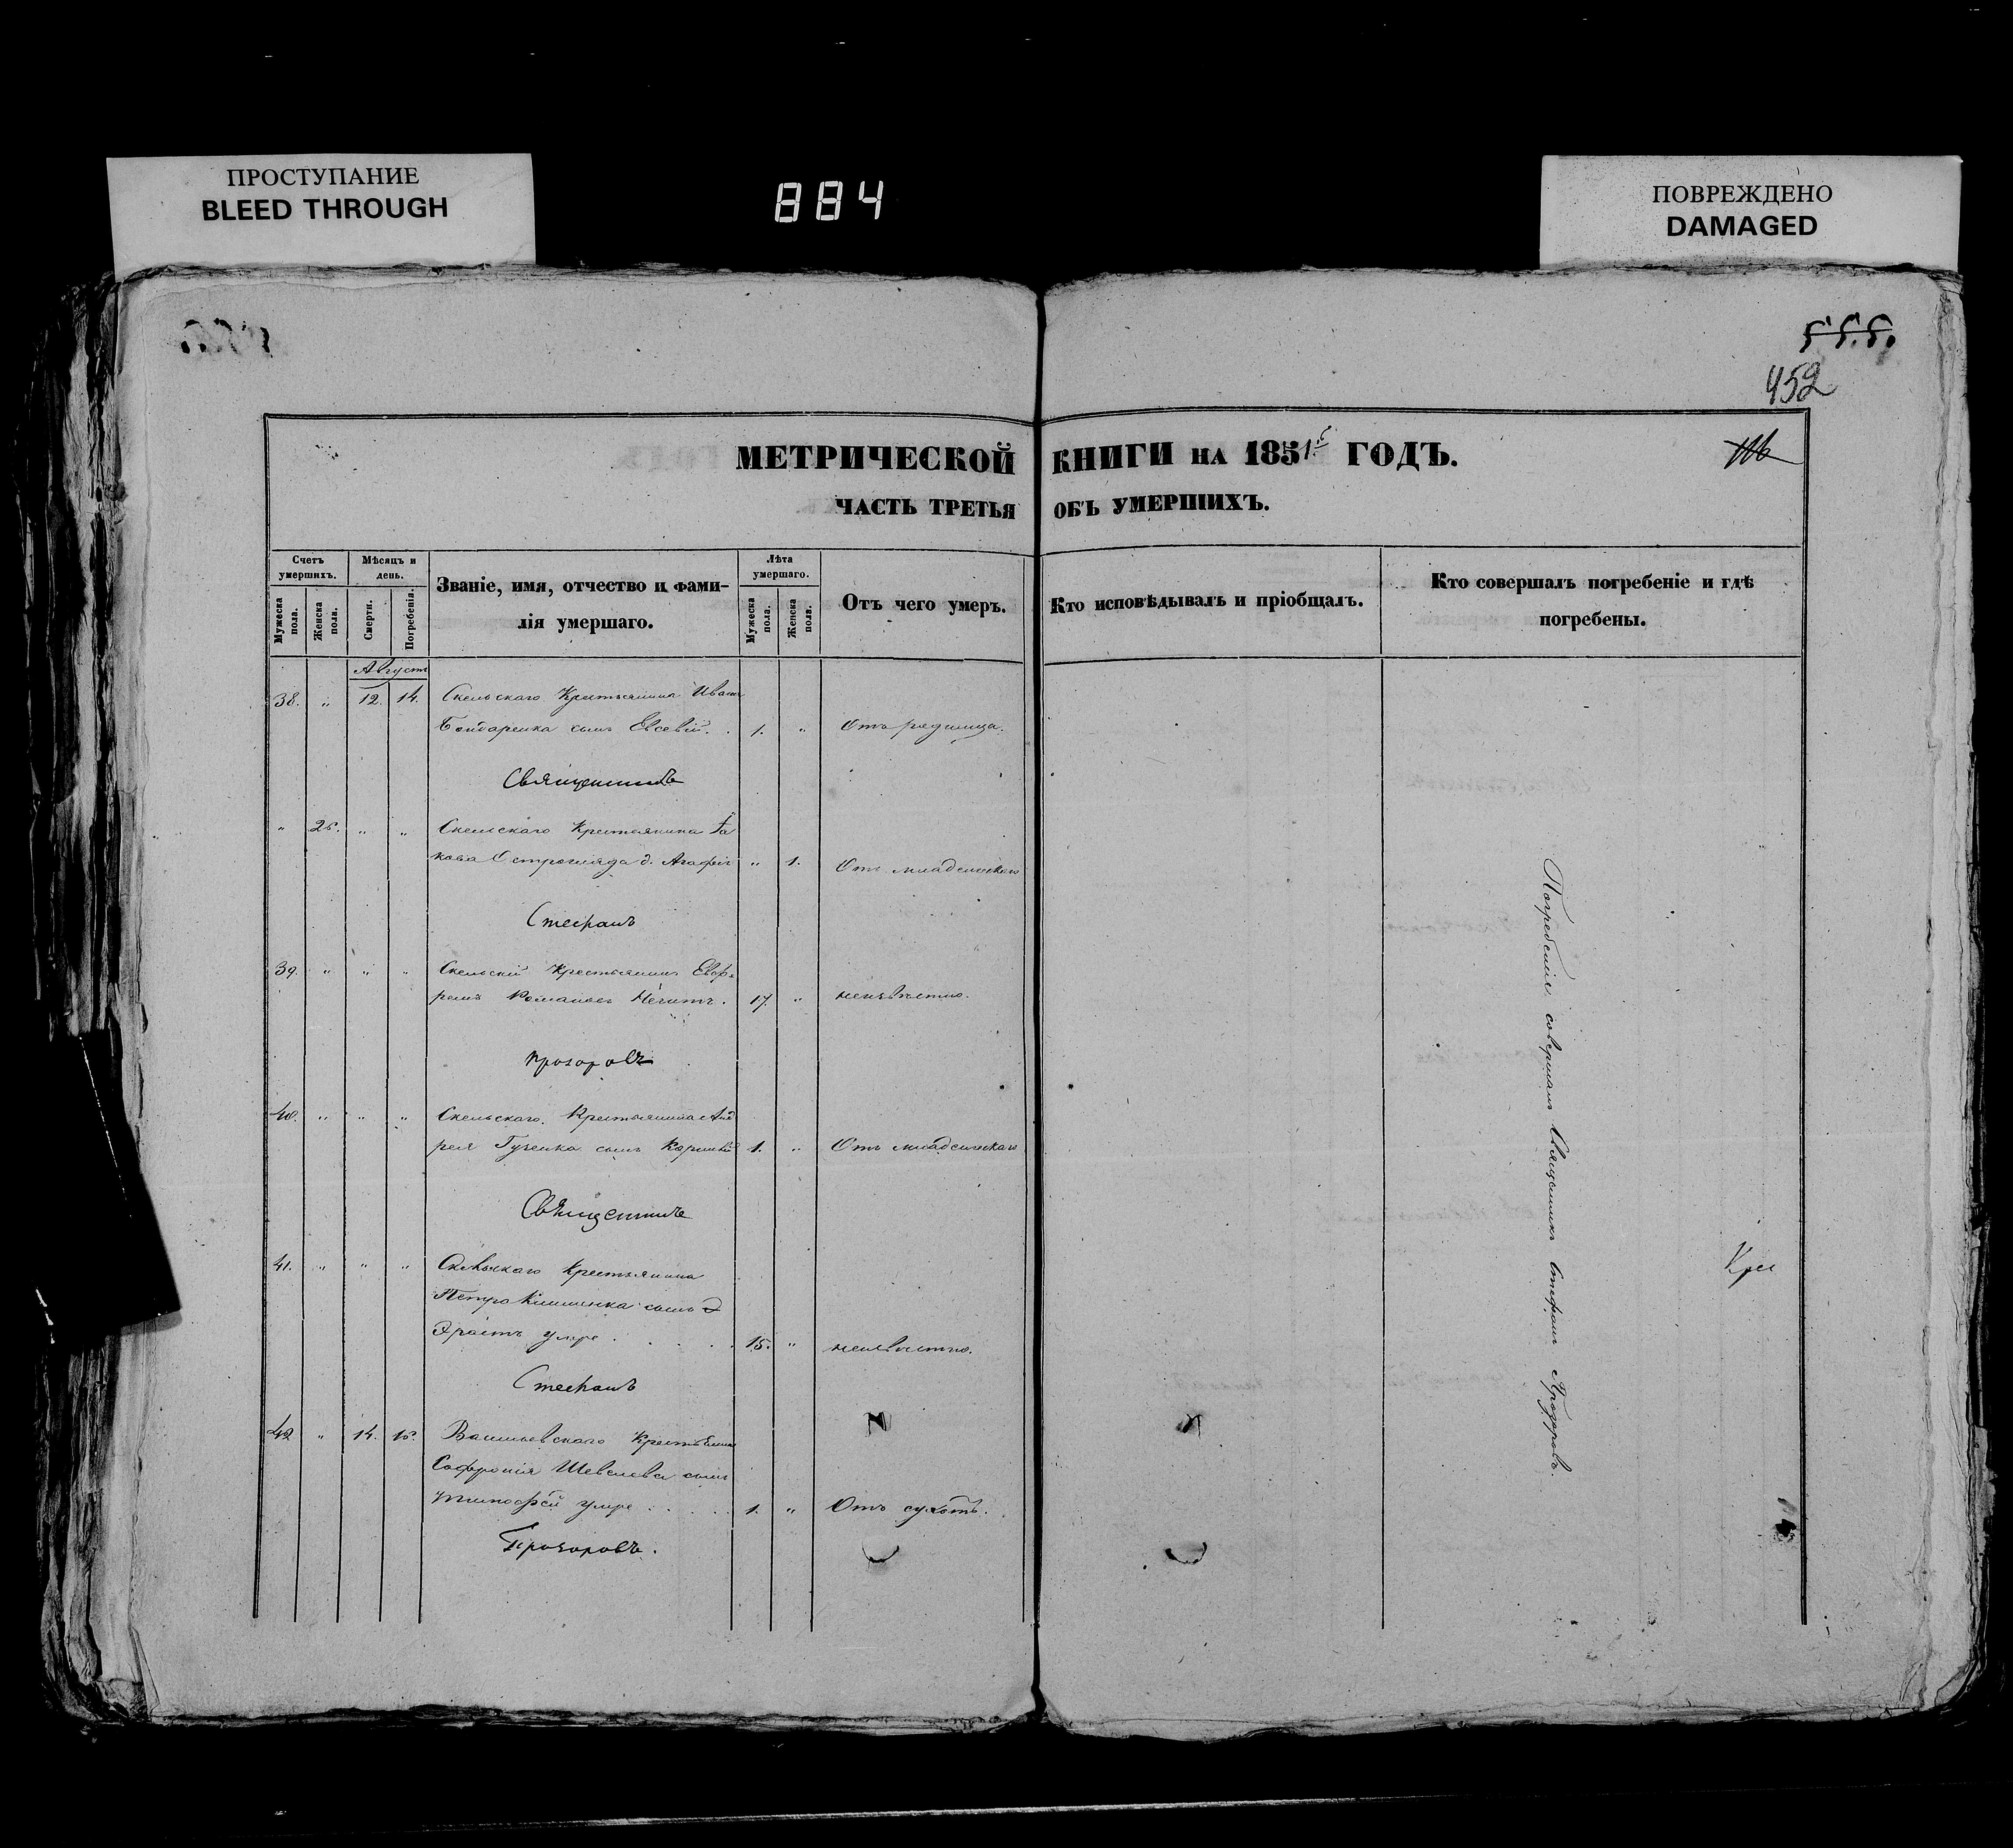 ПРОСТУПАНИЕ
BLEED THROUGH
884
ПОВРЕЖДЕНО
DAMAGED
555.
452
МЕТРИЧЕСКОЙ КНИГИ НА 1851 ГОДЪ.
ЧАСТЬ ТРЕТЬЯ ОБЪ УМЕРШИХЪ.
Счетъ умершихъ.
Мужеска пола.
Женска пола.
Мѣсяцъ и день.
Смерти.
Погребенія.
Званіе, имя, отчество и фами-
лія умершаго.
Лѣта умершаго.
Мужеска пола.
Женска пола.
Отъ чего умеръ.
Кто исповѣдывалъ и пріобщалъ.
Кто совершалъ погребеніе и гдѣ
погребены.
Августъ
38. " 12. 14. Скельскаго Крестьянина Ивана
Бондаренка сынъ Евсевій. 1. " Отъ родимца.
Священникъ
" 25. " " Скельскаго Крестьянина Іа
кова Острогляда д. Агафія " 1. Отъ младенческаго
Стефанъ
39. " " " Скельскій Крестьянинъ Евф-
ремъ Романовъ 17. " неизвѣстно.
Прозоровъ
40. " " " Скельскаго Крестьянина Анд
рея Гученка сынъ Корнилій 1. " Отъ младенческаго
Священникъ
41. " " " Скельскаго Крестьянина
Петра сынъ
Эрастъ умре 15. " неизвѣстно.
Стефанъ
42 " 14. 16. Васильевскаго Крестьянина
Софронія Шевелева сынъ
Тимофѣй умре 1. " Отъ сухотъ.
Прозоровъ.
Погребенія совершалъ Священникъ Стефанъ Прозоровъ.
Кре